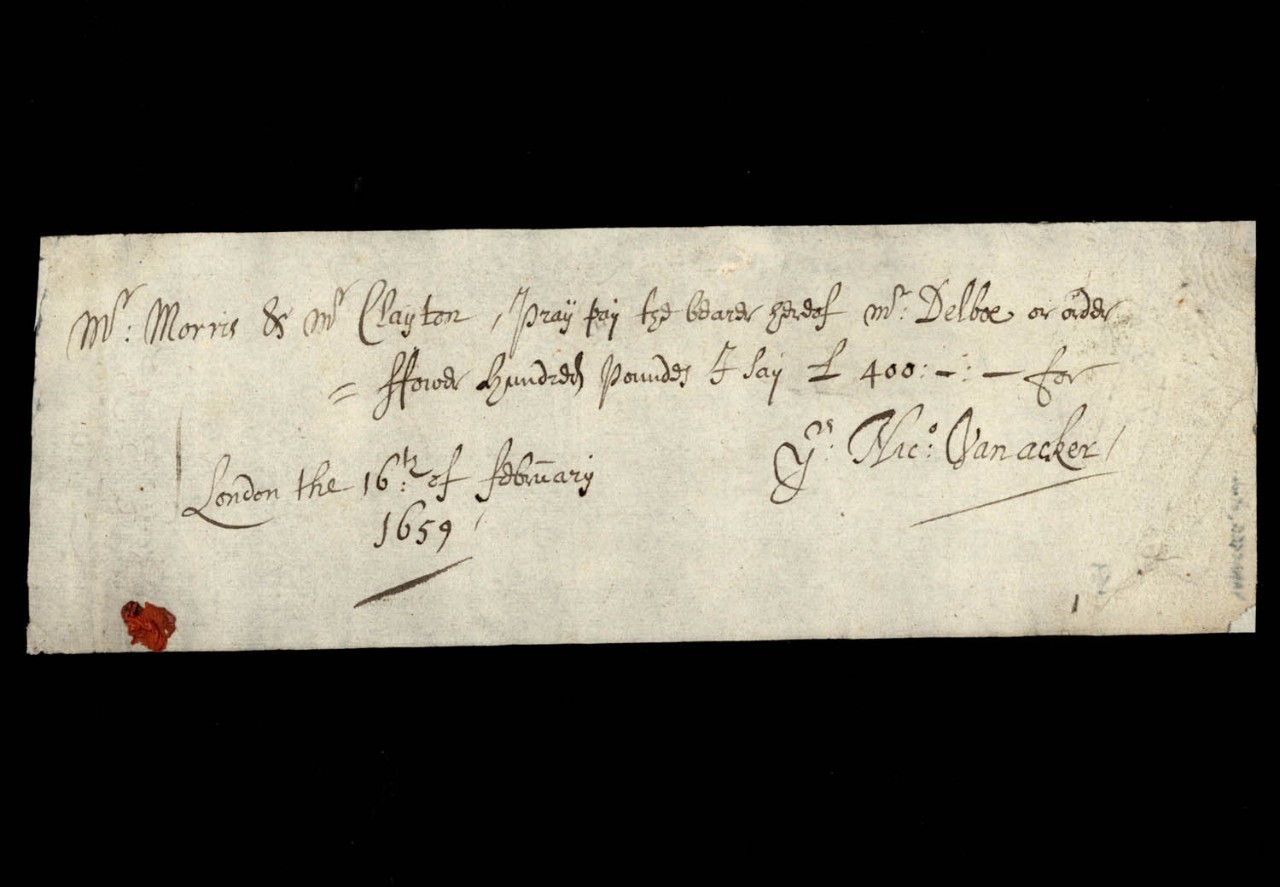 Mr: Morris & Mr Clayton, Pray pay the bearer hereof Mr: Delboe or order
= ffower Hundred Poundes I say £ 400:-:- for
Yrs: Nico: Vanacker
London the 16th: of february
1659